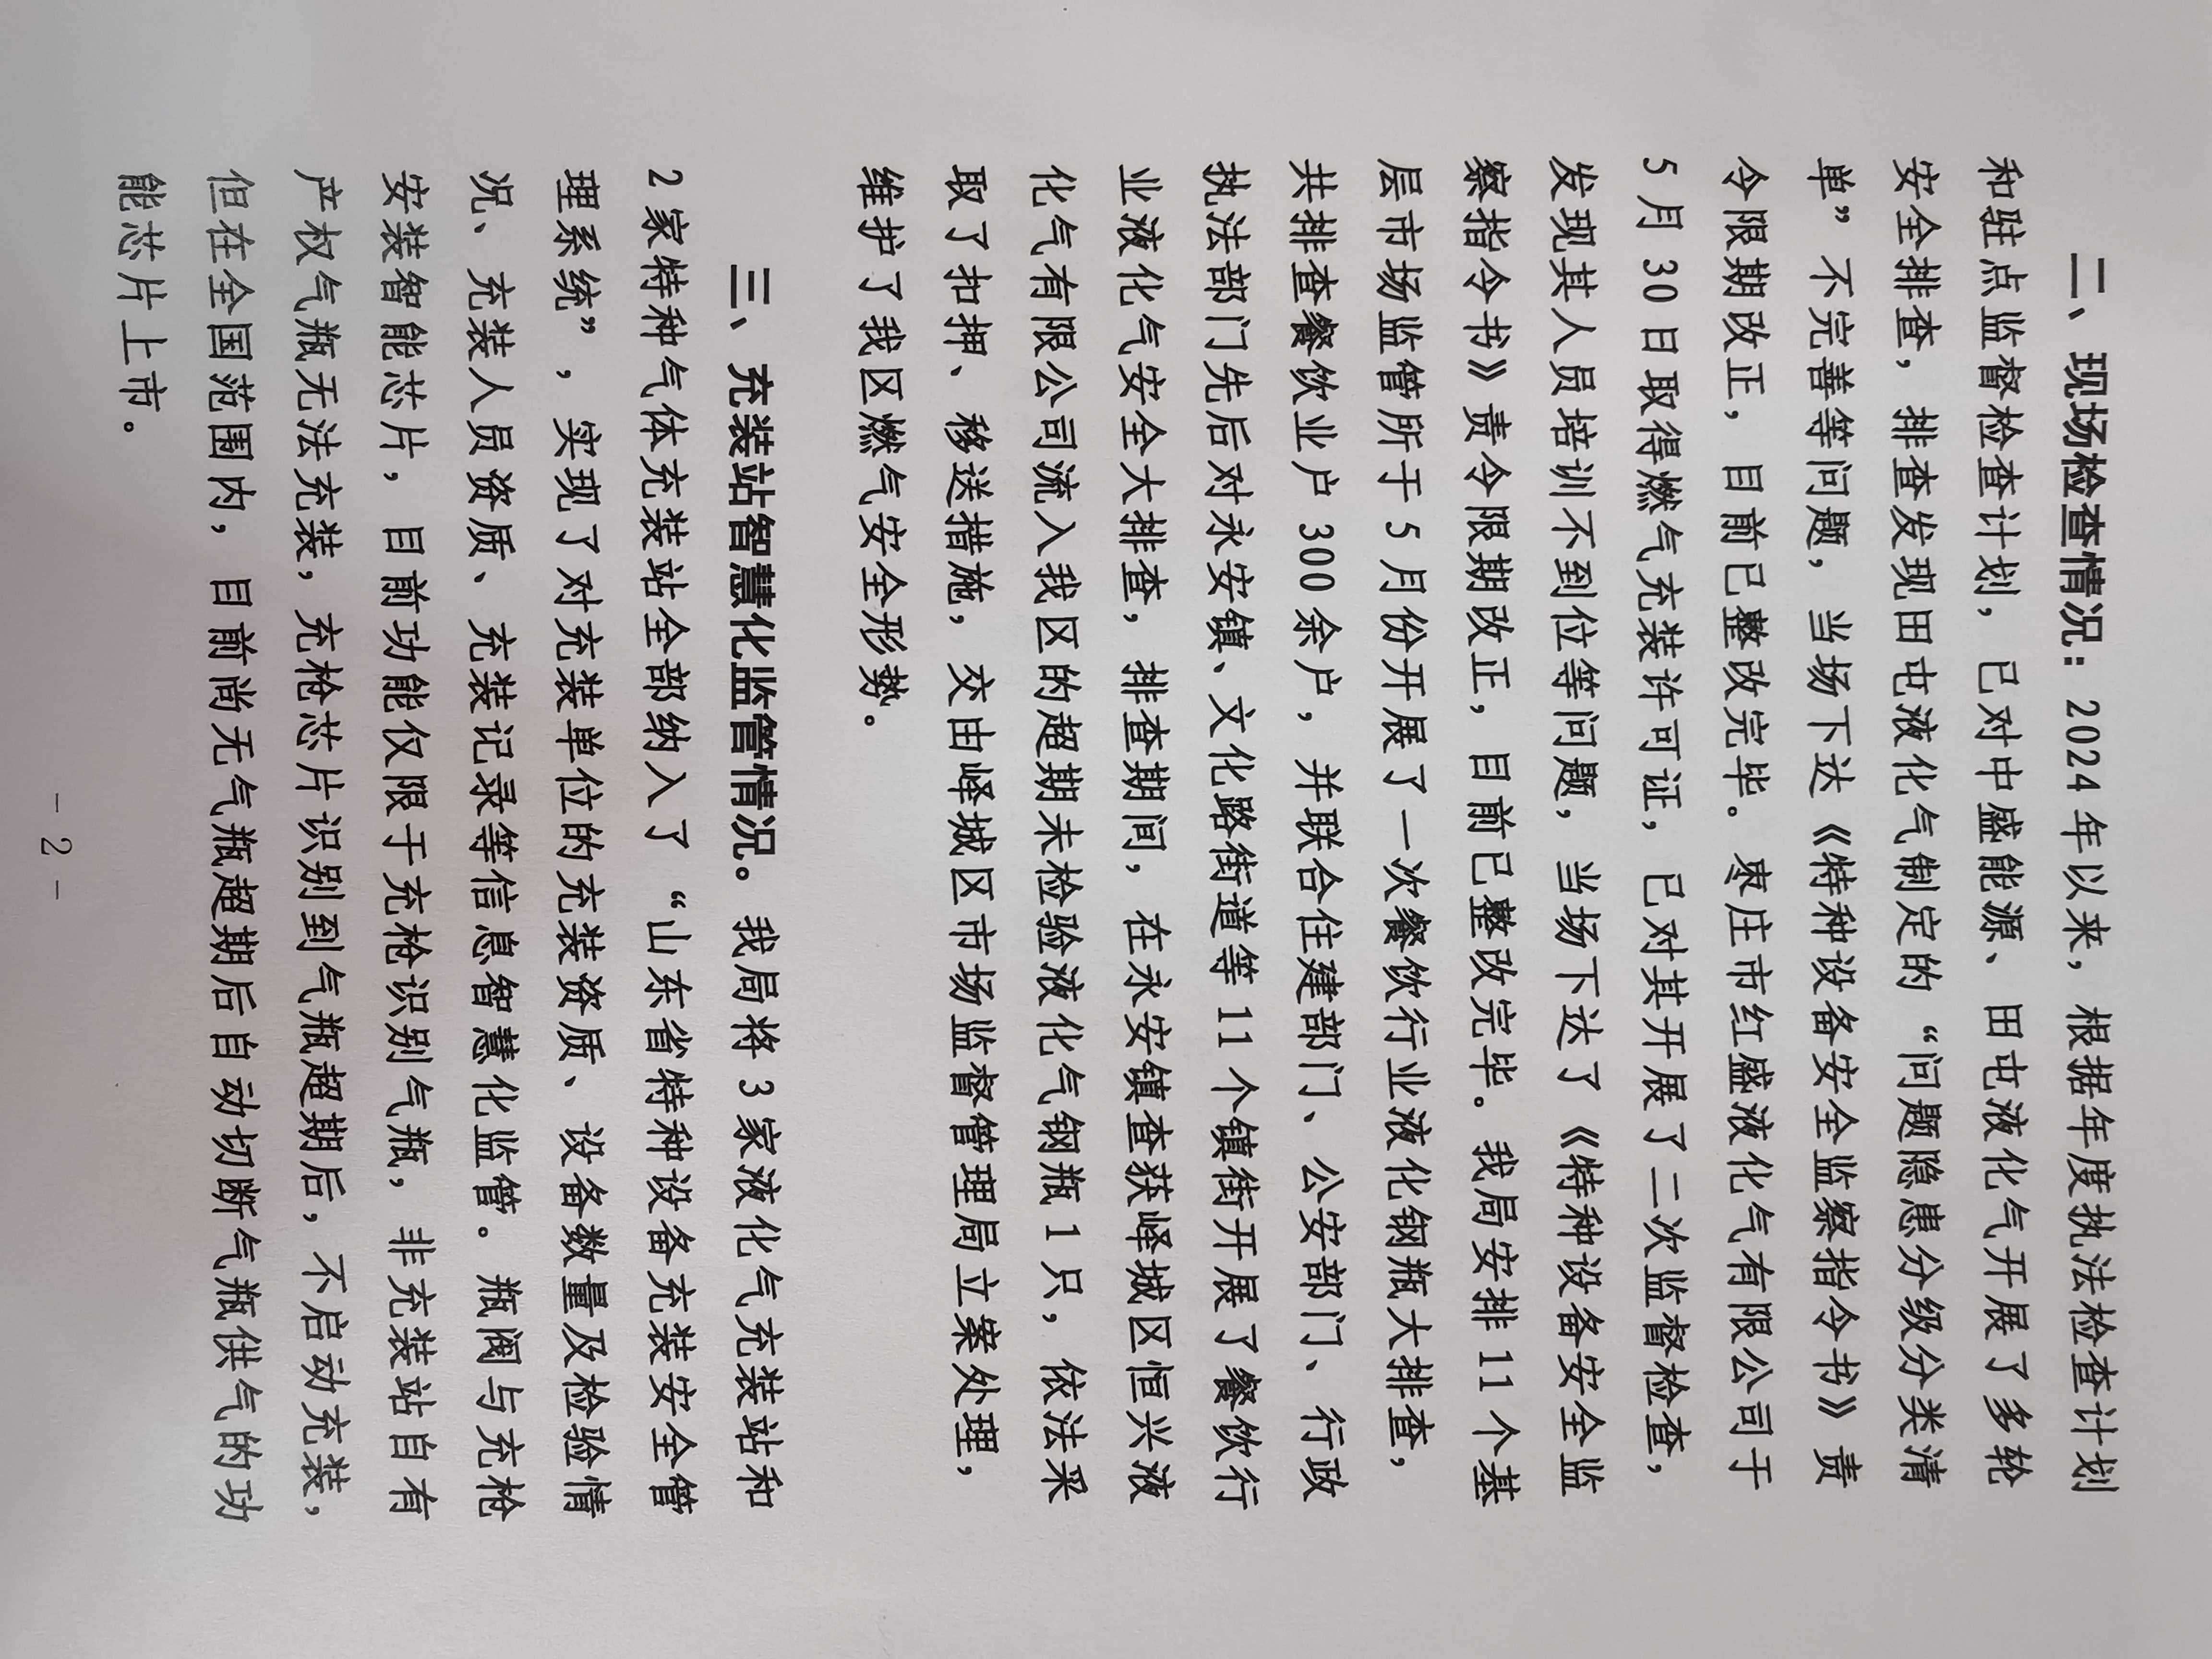 二、现场检查情况：2024年以来，根据年度执法检查计划
和驻点监督检查计划，已对中盛能源、田屯液化气开展了多轮
安全排查，排查发现田屯液化气制定的“问题隐患分级分类清
单”不完善等问题，当场下达《特种设备安全监察指令书》责
令限期改正，目前已整改完毕。枣庄市红盛液化气有限公司于
5月30日取得燃气充装许可证，已对其开展了二次监督检查，
发现其人员培训不到位等问题，当场下达了《特种设备安全监
察指令书》责令限期改正，目前已整改完毕。我局安排11个基
层市场监管所于5月份开展了一次餐饮行业液化钢瓶大排查，
共排查餐饮业户300余户，并联合住建部门、公安部门、行政
执法部门先后对永安镇、文化路街道等11个镇街开展了餐饮行
业液化气安全大排查，排查期间，在永安镇查获峄城区恒兴液
化气有限公司流入我区的超期未检验液化气钢瓶1只，依法采
取了扣押、移送措施，交由峄城区市场监督管理局立案处理，
维护了我区燃气安全形势。
三、充装站智慧化监管情况。我局将3家液化气充装站和
2家特种气体充装站全部纳入了“山东省特种设备充装安全管
理系统”，实现了对充装单位的充装资质、设备数量及检验情
况、充装人员资质、充装记录等信息智慧化监管。瓶阀与充枪
安装智能芯片，目前功能仅限于充枪识别气瓶，非充装站自有
产权气瓶无法充装，充枪芯片识别到气瓶超期后，不启动充装，
但在全国范围内，目前尚无气瓶超期后自动切断气瓶供气的功
能芯片上市。
-2-